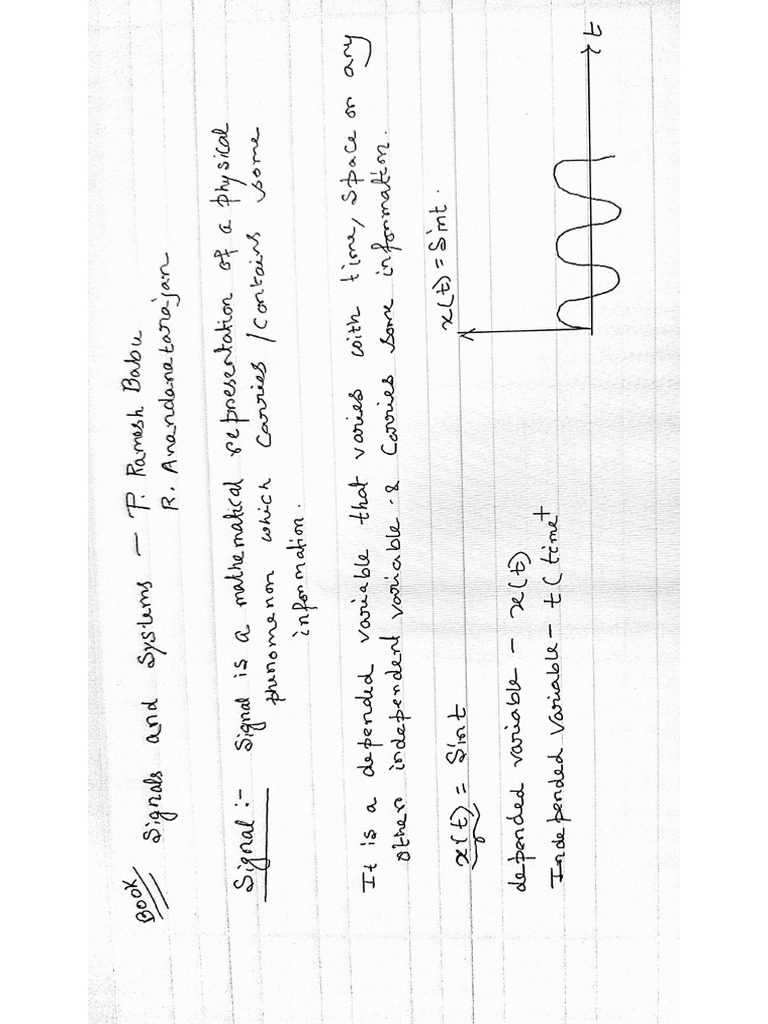 BOOK Signals and Systems — P. Ramesh Babu
R. Anandanatarajan
Signal :- Signal is a mathematical representation of a physical
phenomenon which carries / contains some
information.
It is a depended variable that varies with time, space or any
other independent variable & carries some information.
x(t) = Sint
x(t) = Sint.
t
depended variable - x(t)
Independed variable - t (time)